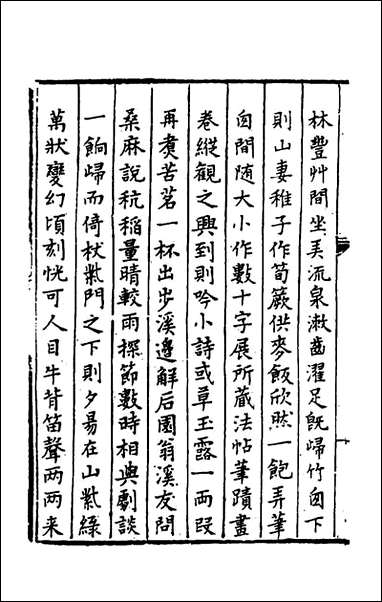 林豐艸間坐弄流泉漱齒濯足旣歸竹囱下
則山妻稚子作筍蕨供麥飯欣然一飽弄筆
囱間随大小作數十字展所蔵法帖筆蹟畫
卷縱觀之興到則吟小詩或草玉露一兩段
再煑苦茗一杯出步溪邉解后園翁溪友問
桑麻說秔稻量晴較雨探節數時相與劇談
一餉歸而倚杖柴門之下則夕昜在山紫綠
萬狀變幻頃刻恍可人目牛背笛聲两两来